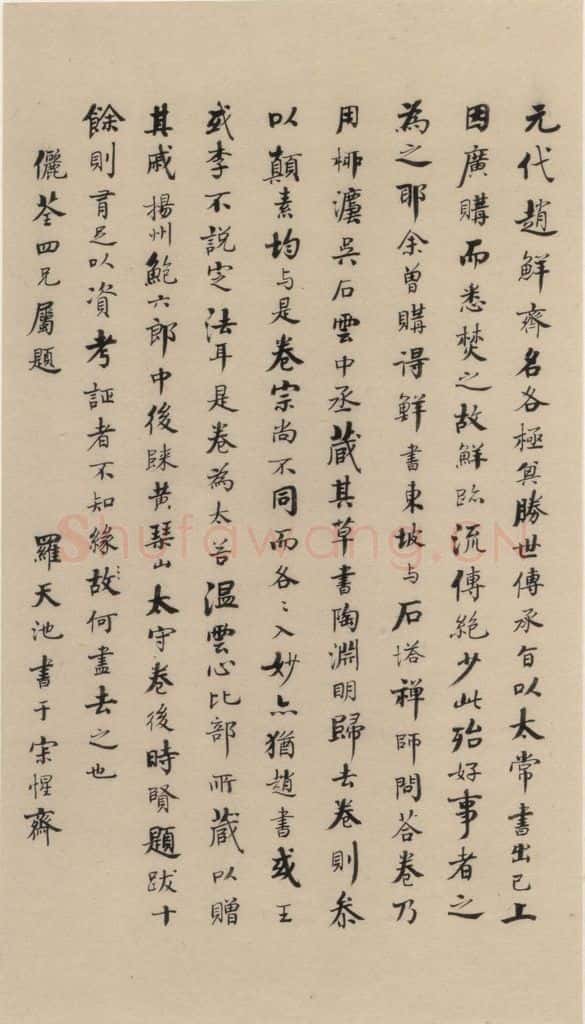 元代趙鮮齊名各極其勝世傳承旨以太常書出己上
因廣購而悉焚之故鮮跡流傳絕少此殆好事者之
為之耶余曾購得鮮書東坡与石塔禅師問荅卷乃
用柳灋吳石雲中丞蔵其草書陶淵明歸去卷則叅
以顛素均与是卷宗尚不同而各〻入妙亦猶趙書或王
或李不說定法耳是卷為太苦温雲心比部所蔵以贈
其戚揚州鮑六郎中後歸黄琴山太守卷後時賢題跋十
餘則有足以資考証者不知緣故何盡去之也
儷荃四兄屬題
羅天池書于宗惺齋
shufawang.CN